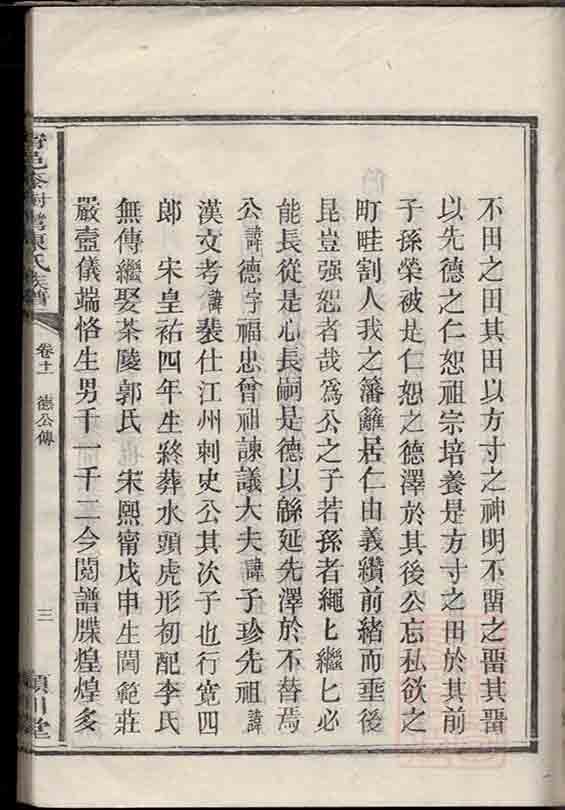 不田之田其田以方寸之神明不畱之畱其畱
以先德之仁恕祖宗培養是方寸之田於其前
子孫榮被是仁恕之德澤於其後公忘私欲之
町畦割人我之籓籬居仁由義纘前緒而垂後
昆豈强恕者哉為公之子若孫者繩匕繼匕必
能長從是心長嗣是德以緜延先澤於不替焉
公諱德字福忠曾祖諫議大夫諱子珍先祖諱
漢文考諱裴仕江州刺史公其次子也行寬四
郎 宋皇祐四年生終葬水頭虎形初配李氏
無傳繼娶茶陵郭氏 宋熙甯戊申生閫範莊
嚴壼儀端恪生男千一千二今閱譜牒煌煌多
陳氏族譜
卷十一 德公傳
三
潁川堂